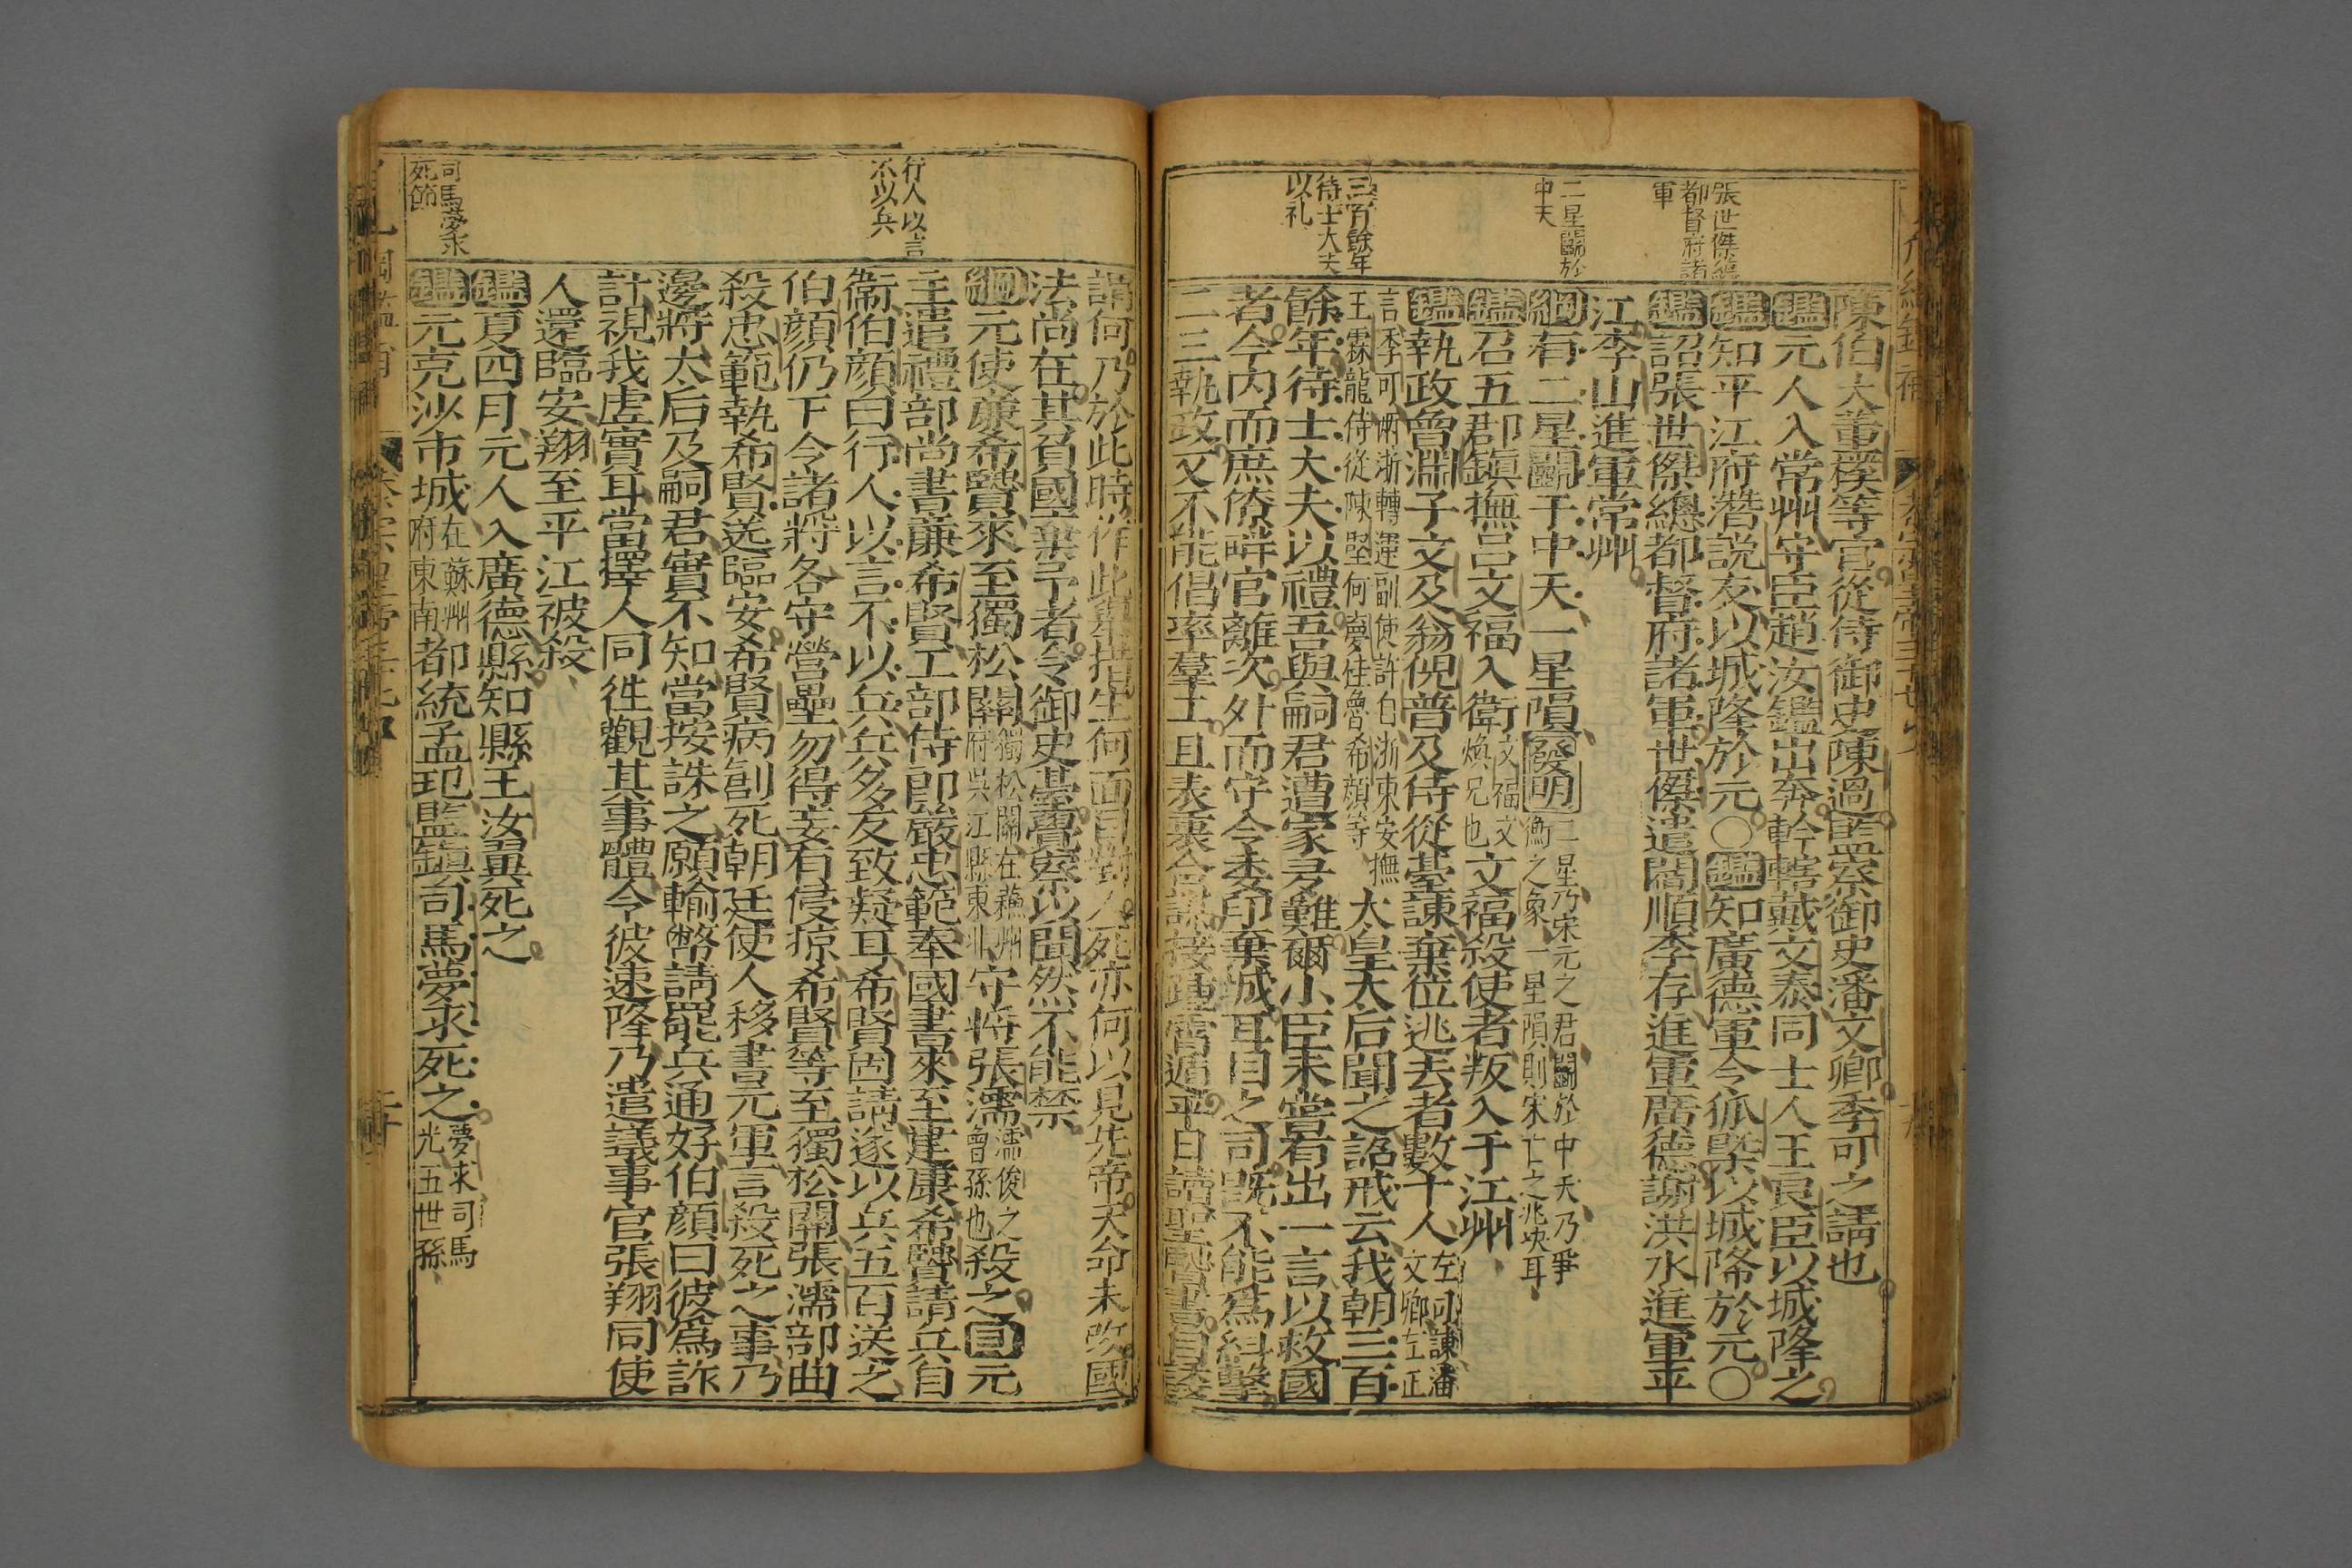 張世傑總
都督府諸
軍
二星鬬於
中天
三百餘年
待士大夫
以礼
陳伯大董樸等官從侍御史陳過監察御史潘文卿季可之請也
鑑元人入常州守臣趙汝鑑出奔幹轄戴文泰同士人王良臣以城降之
鑑知平江府潛說友以城降於元〇鑑知廣德軍令狐槩以城降於元〇
鑑詔張世傑總都督府諸軍世傑遣閻順李存進軍廣德謝洪永進軍平
江李山進軍常州
綱有二星鬬于中天一星隕發明二星乃宋元之君鬬於中天乃爭
衡之象一星隕則宋亡之兆决耳
鑑召五郡鎮撫呂文福入衛文福文
煥兄也文福殺使者叛入于江州
鑑執政曾淵子文及翁倪普及侍從臺諫棄位逃去者數十人左司諫潘
文卿左正
言季可兩浙轉運副使許自浙東安撫
王霖龍侍從陳堅何夢桂魯希顏等太皇太后聞之詔戒云我朝三百
餘年待士大夫以禮吾與嗣君遭家多難爾小臣未嘗有出一言以救國
者今内而庶僚畔官離次外而守令委印棄城耳目之司既不能為糾擊
二三執政又不能倡率羣工且表裏合謀接踵宵遁平日讀聖賢書自諉
行人以言
不以兵
司馬夢求
死節
謂何乃於此時作此舉措生何面目對人死亦何以見先帝天命未改國
法尚在其負國棄予者令御史臺覺察以聞然不能禁
綱元使廉希賢來至獨松關獨松關在蘇州
府吳江縣東北守將張濡濡俊之
曾孫也殺之目元
主遣禮部尚書廉希賢工部侍郎嚴忠範奉國書來至建康希賢請兵自
衞伯顏曰行人以言不以兵兵多反致疑耳希賢固請遂以兵五百送之
伯顏仍下令諸將各守營壘勿得妄有侵掠希賢等至獨松關張濡部曲
殺忠範執希賢送臨安希賢病創死朝廷使人移書元軍言殺死之事乃
邊將太后及嗣君實不知當按誅之願輸幣請罷兵通好伯顏曰彼為詐
計視我虛實耳當擇人同徃觀其事體令彼速降乃遣議事官張翔同使
人還臨安翔至平江被殺
鑑夏四月元人入廣德縣知縣王汝翼死之
鑑元克沙市城在蘇州
府東南都統孟玘監鎮司馬夢求死之夢求司馬
光五世孫